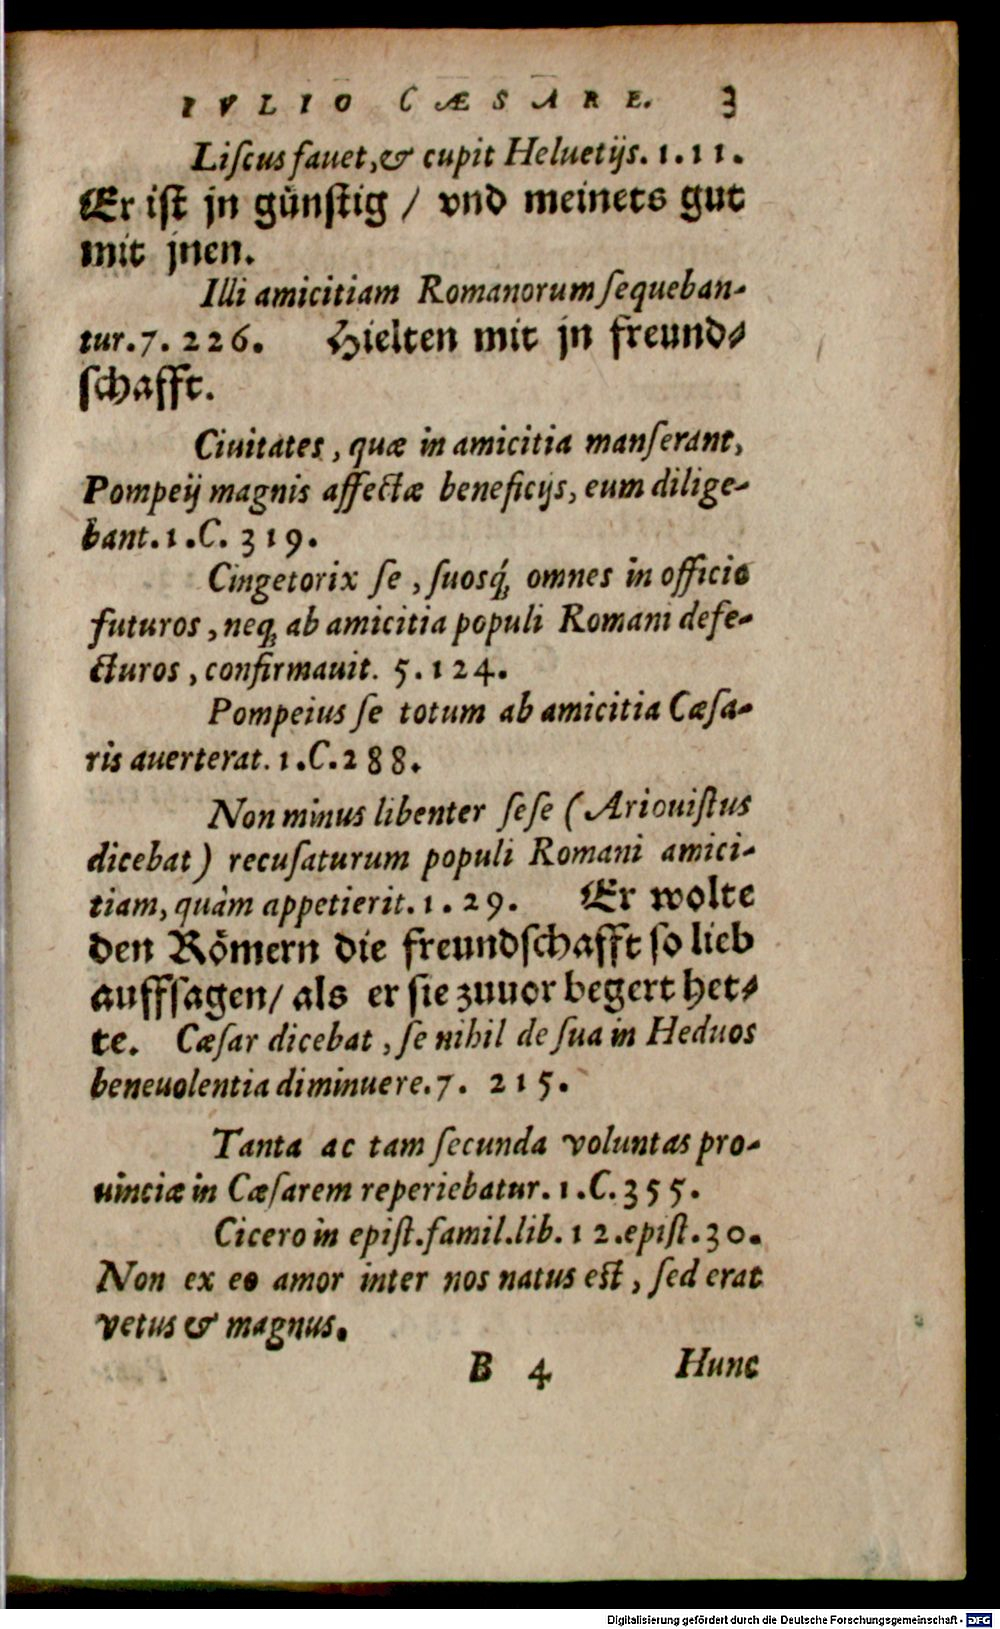 IVLIO CÆSARE. 3
Liſcus fauet, & cupit Heluetijs. 1. 11.
Er iſt jn günſtig / vnd meinets gut
mit jnen.
Illi amicitiam Romanorum ſequeban-
tur. 7. 226. Hielten mit jn freund-
ſchafft.
Ciuitates, quæ in amicitia manſerant,
Pompeij magnis affectæ beneficijs, eum dilige-
bant. 1. C. 319.
Cingetorix ſe, ſuosq́; omnes in officio
futuros, neq; ab amicitia populi Romani defe-
cturos, confirmauit. 5. 124.
Pompeius ſe totum ab amicitia Cæſa-
ris auerterat. 1. C. 288.
Non minus libenter ſeſe (Ariouiſtus
dicebat) recuſaturum populi Romani amici-
tiam, quàm appetierit. 1. 29. Er wolte
den Römern die freundſchafft ſo lieb
auffſagen/ als er ſie zuuor begert het-
te. Cæſar dicebat, ſe nihil de ſua in Heduos
beneuolentia diminuere. 7. 215.
Tanta ac tam ſecunda voluntas pro-
uinciæ in Cæſarem reperiebatur. 1. C. 355.
Cicero in epiſt. famil. lib. 12. epiſt. 30.
Non ex eo amor inter nos natus eſt, ſed erat
vetus & magnus.
B 4 Hunc
Digitalisierung gefördert durch die Deutsche Forschungsgemeinschaft - DFG